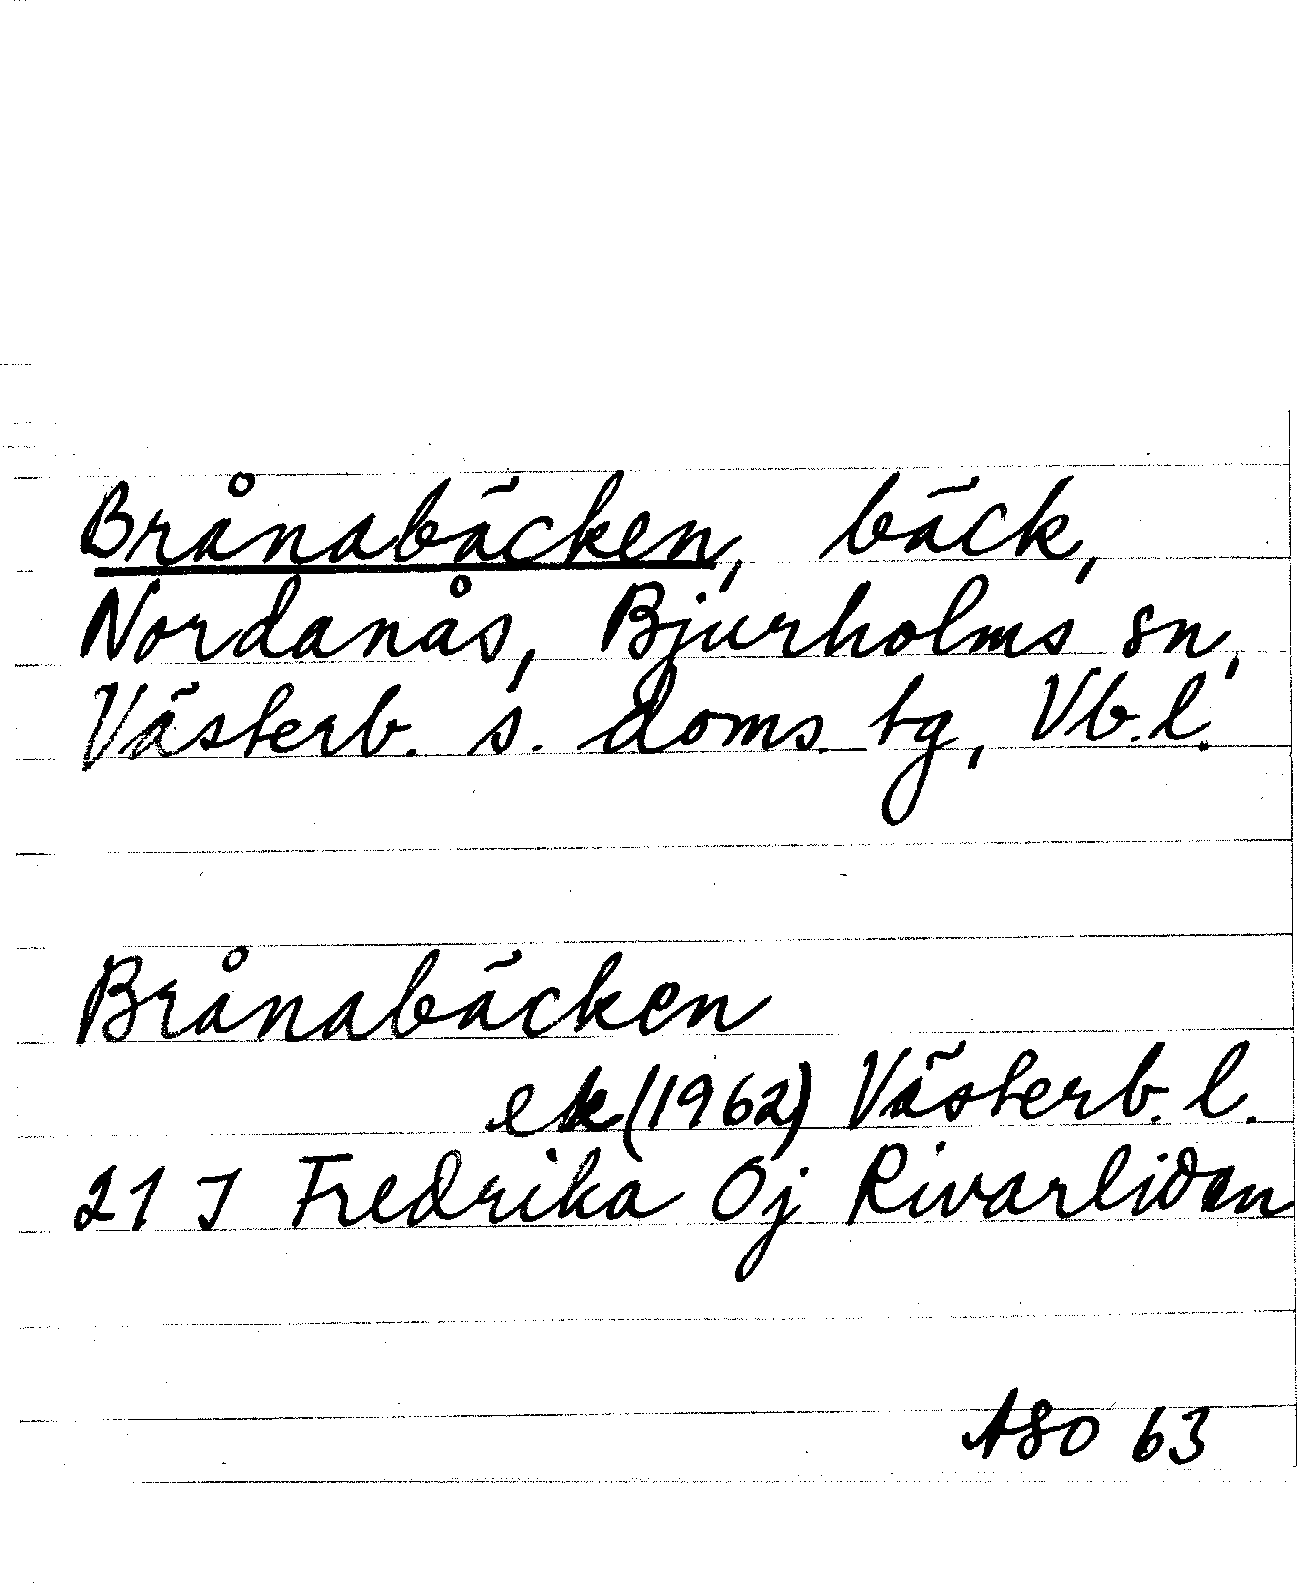 Brånabäcken, bäck,
Nordanås, Bjurholms sn,
Västerb. s. doms. tg, Vb. l.
Brånabäcken
ek (1962) Västerb. l.
21 J Fredrika Öj Rivarlidan
ASO 63